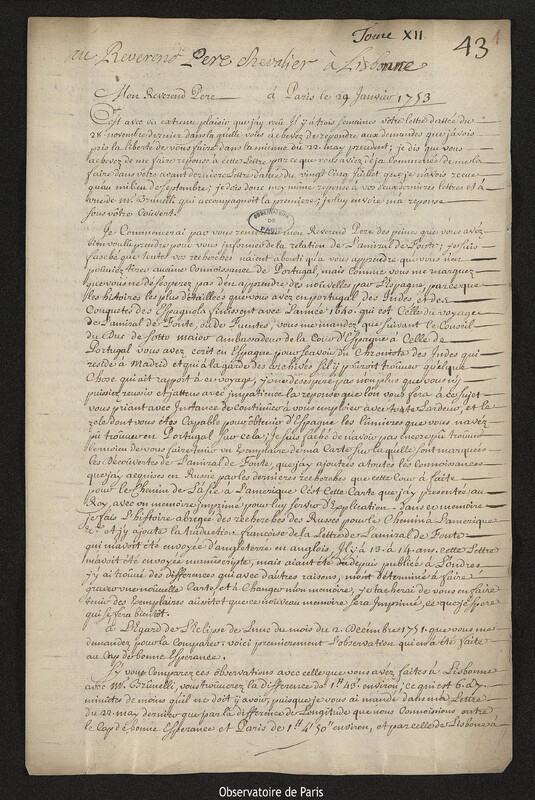 Tome XII
43
1
au Reverend Pere Chevalier à Lisbonne
Mon Reverend Pere à Paris le 29 Janvier 1753
C'est avec un extreme plaisir que j'ay reçu il y a trois semaines votre lettre dattée du
28 novembre dernier dans laquelle vous achevez de repondre aux demandes que j'avois
pris la liberté de vous faire dans la mienne du 22 may precedent; je dis que vous
achevez de me faire reponse à cette Lettre parce que vous aviez deja Commencé de me la
faire dans votre avant derniere Lettre dattée du vingt cinq Juillet que je n'avois recue
qu'au milieu de Septembre; je dois donc moy meme reponse à vos deux dernieres lettres et à
de Mr. Brunelli qui accompagnoit la premiere; je luy envoie ma reponse
sous votre Couvert.
OBSERVATOIRE DE PARIS
Je Commencerai par vous mon Reverend Pere des peines que vous avez
bien voulu prendre pour vous informer de la relation de L'amiral de Fonte; je suis
faché que toutes vos recherches n'aient abouti qu'a vous apprendre que vous n'en
pouviez tirer aucune Connoissance de Portugal, mais comme vous me marquez
que vous ne desesperez pas d'en apprendre des nouvelles par l'Espagne, parce que
les histoires les plus détaillées que vous avez en portugal des Indes et des
Conquetes des Espagnols finissent avec l'année 1640. qui est Celle du voyage
de l'amiral de Fonte, ou de Fuentes; vous me mandez que suivant le Conseil
du Duc de Soto maior ambassadeur de la Cour d'Espagne à Celle de
Portugal vous avez ecrit en Espagne pour scavoir du Chroniste des Indes qui
reside à Madrid et qui a la garde des archives s'il y pourroit trouver quelque
Chose qui ait rapport à ce voyage, je ne desespere pas non plus que vous n'y
puissiez reussir et j'attens avec impatience la reponse que l'on vous fera à ce Sujet
vous priant avec Instance de Continuer à vous employer avec toute l'ardeur, et le
zele dont vous etes Capable pour obtenir d'Espagne les lumieres que vous n'avez
pû trouver en Portugal sur cela; Je suis faché de n'avoir pas encore pû trouver
le moien de vous faire tenir un Exemplaire de ma Carte sur laquelle sont marquées
les Découvertes de l'amiral de Fonte, que j'ay ajoutées à toutes les Connoissances
que j'ay acquises en Russie par les dernieres recherches que cette Cour a faite
pour le Chemin de l'Asie à l'amerique C'est Cette Carte que j'ay presentée au
Roy, avec un memoire imprimé pour luy servir d'Explication. dans ce memoire
je fais l'histoire abregée des recherches des Russes pour le Chemin à l'amerique
et j'y ajoute la traduction francoise de la Lettre de l'amiral de Fonte
qui m'avoit été envoyée d'angleterre en anglois, il y a 13. à 14. ans, cette Lettre
m'avoit été envoyée manuscripte, mais aiant été depuis publiée à Londres
j'y ai trouvé des differences qui avec d'autres raisons, m'ont determiné à faire
graver une nouvelle Carte, et à Changer mon memoire, je tacherai de vous en faire
tenir des Exemplaires aussitot que ce nouveau memoire sera Imprimé, ce que j'espere
qui se fera bientot.
à l'Egard de l'Eclipse de Lune du mois du 2. Decembre 1751. que vous me
demandez pour la Comparer, voici premierement l'observation qui en a été faite
au Cap de bonne Esperance.
J'y vous Comparez ces observations avec celle que vous avez faite à Lisbonne
avec Mr. Brunelli, vous trouverez la difference de 1h 49'. environ; ce qui est 6. à 7.
minutes de moins qu'il ne doit y avoir, puisque je vous ai mandé dans ma Lettre
du 22. may dernier que par la difference de Longitude que nous Connoissions entre
le Cap de bonne Esperance et Paris de 1h 4' 50" environ, et par celle de Lisbonne à
Observatoire de Paris